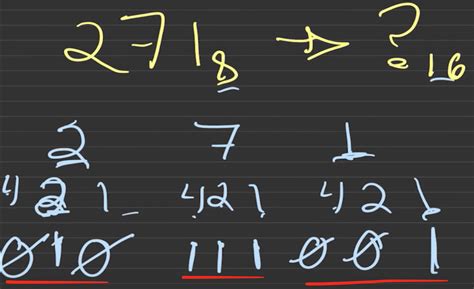 271₈ → ?₁₆
2 7 1
421 421 421
010 111 001